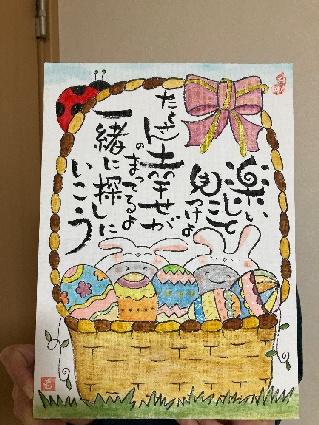 楽しいこと
見つけよ
幸せが
まってるよ
一緒に探しに
いこう